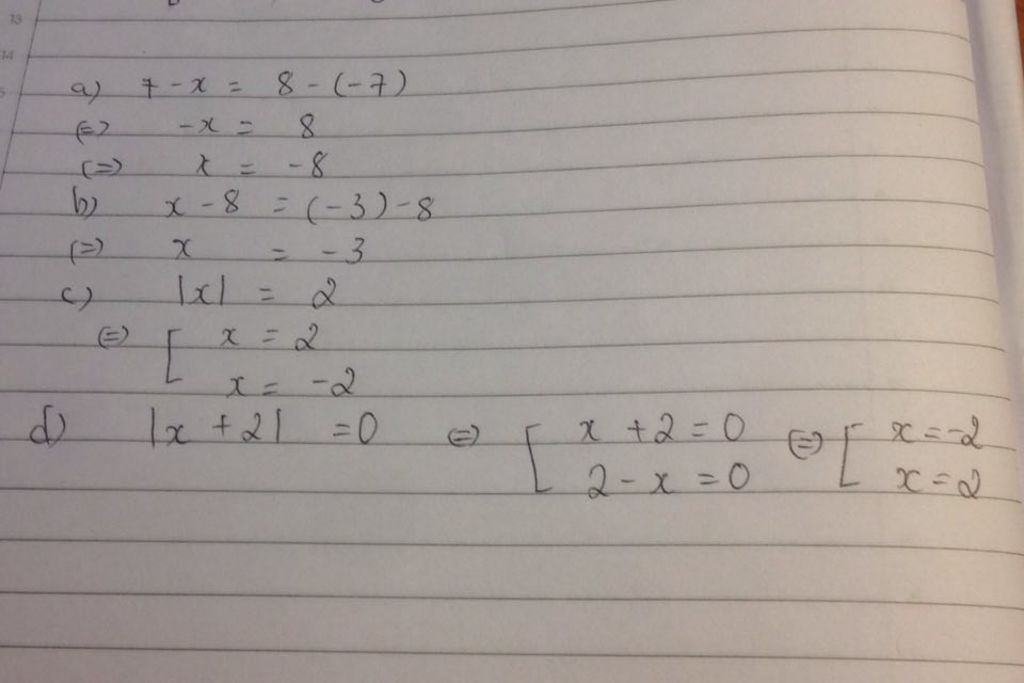 13
14
a) 7 - x = 8 - (-7)
(=) - x = 8
(=) x = - 8
b) x - 8 = (-3) - 8
(=) x = - 3
c) |x| = 2
(=) [ x = 2
x = -2
d) |x + 2| = 0 (=) [ x + 2 = 0 (=) [ x = -2
2 - x = 0 x = 2